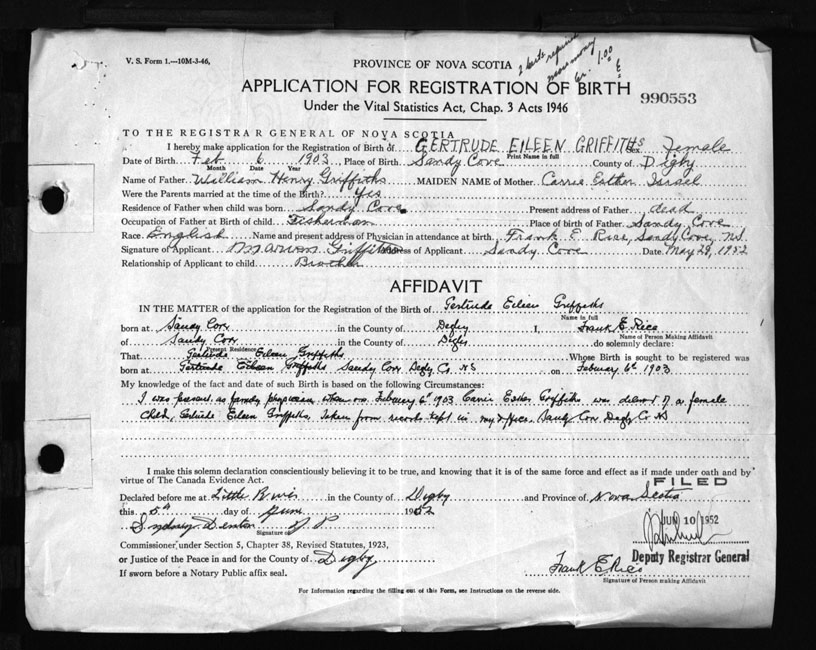 V. S. Form 1.—10M-3-46,
PROVINCE OF NOVA SCOTIA
2 certs required
1.00
APPLICATION FOR REGISTRATION OF BIRTH
990553
Under the Vital Statistics Act, Chap. 3 Acts 1946
TO THE REGISTRAR GENERAL OF NOVA SCOTIA
I hereby make application for the Registration of Birth of GERTRUDE EILEEN GRIFFITHS Female
Print Name in full
Date of Birth Feb 6 1903 Place of Birth Sandy Cove County of Digby
Month Date Year
Name of Father William Henry Griffiths MAIDEN NAME of Mother Carrie Esther Israel
Were the Parents married at the time of the Birth? Yes
Residence of Father when child was born Sandy Cove Present address of Father dead
Occupation of Father at Birth of child Fisherman Place of birth of Father Sandy Cove
Race English Name and present address of Physician in attendance at birth Frank E. Rice, Sandy Cove, N.S.
Signature of Applicant Griffiths Address of Applicant Sandy Cove Date May 29, 1952
Relationship of Applicant to child Brother
AFFIDAVIT
IN THE MATTER of the application for the Registration of the Birth of Gertrude Eileen Griffiths
Name in full
born at Sandy Cove in the County of Digby I, Frank E. Rice
Name of Person Making Affidavit
of Sandy Cove in the County of Digby do solemnly declare:
Present Residence
That Gertrude Eileen Griffiths Whose Birth is sought to be registered was
born at Gertrude Eileen Griffiths Sandy Cove Digby Co. NS on February 6th 1903
My knowledge of the fact and date of such Birth is based on the following Circumstances:
I was present as family physician when on February 6th 1903 Carrie Esther Griffiths was delivered of a female
child, Gertrude Eileen Griffiths, taken from records kept in my office. Sandy Cove Digby Co NS
I make this solemn declaration conscientiously believing it to be true, and knowing that it is of the same force and effect as if made under oath and by
virtue of The Canada Evidence Act.
FILED
Declared before me at Little River in the County of Digby and Province of Nova Scotia
this 5th day of June 1952
JUN 10 1952
Sydney Denton J P
Signature of
Commissioner, under Section 5, Chapter 38, Revised Statutes, 1923,
Deputy Registrar General
or Justice of the Peace in and for the County of Digby
Frank E Rice
Signature of Person making Affidavit
If sworn before a Notary Public affix seal.
For Information regarding the filling out of this Form, see Instructions on the reverse side.